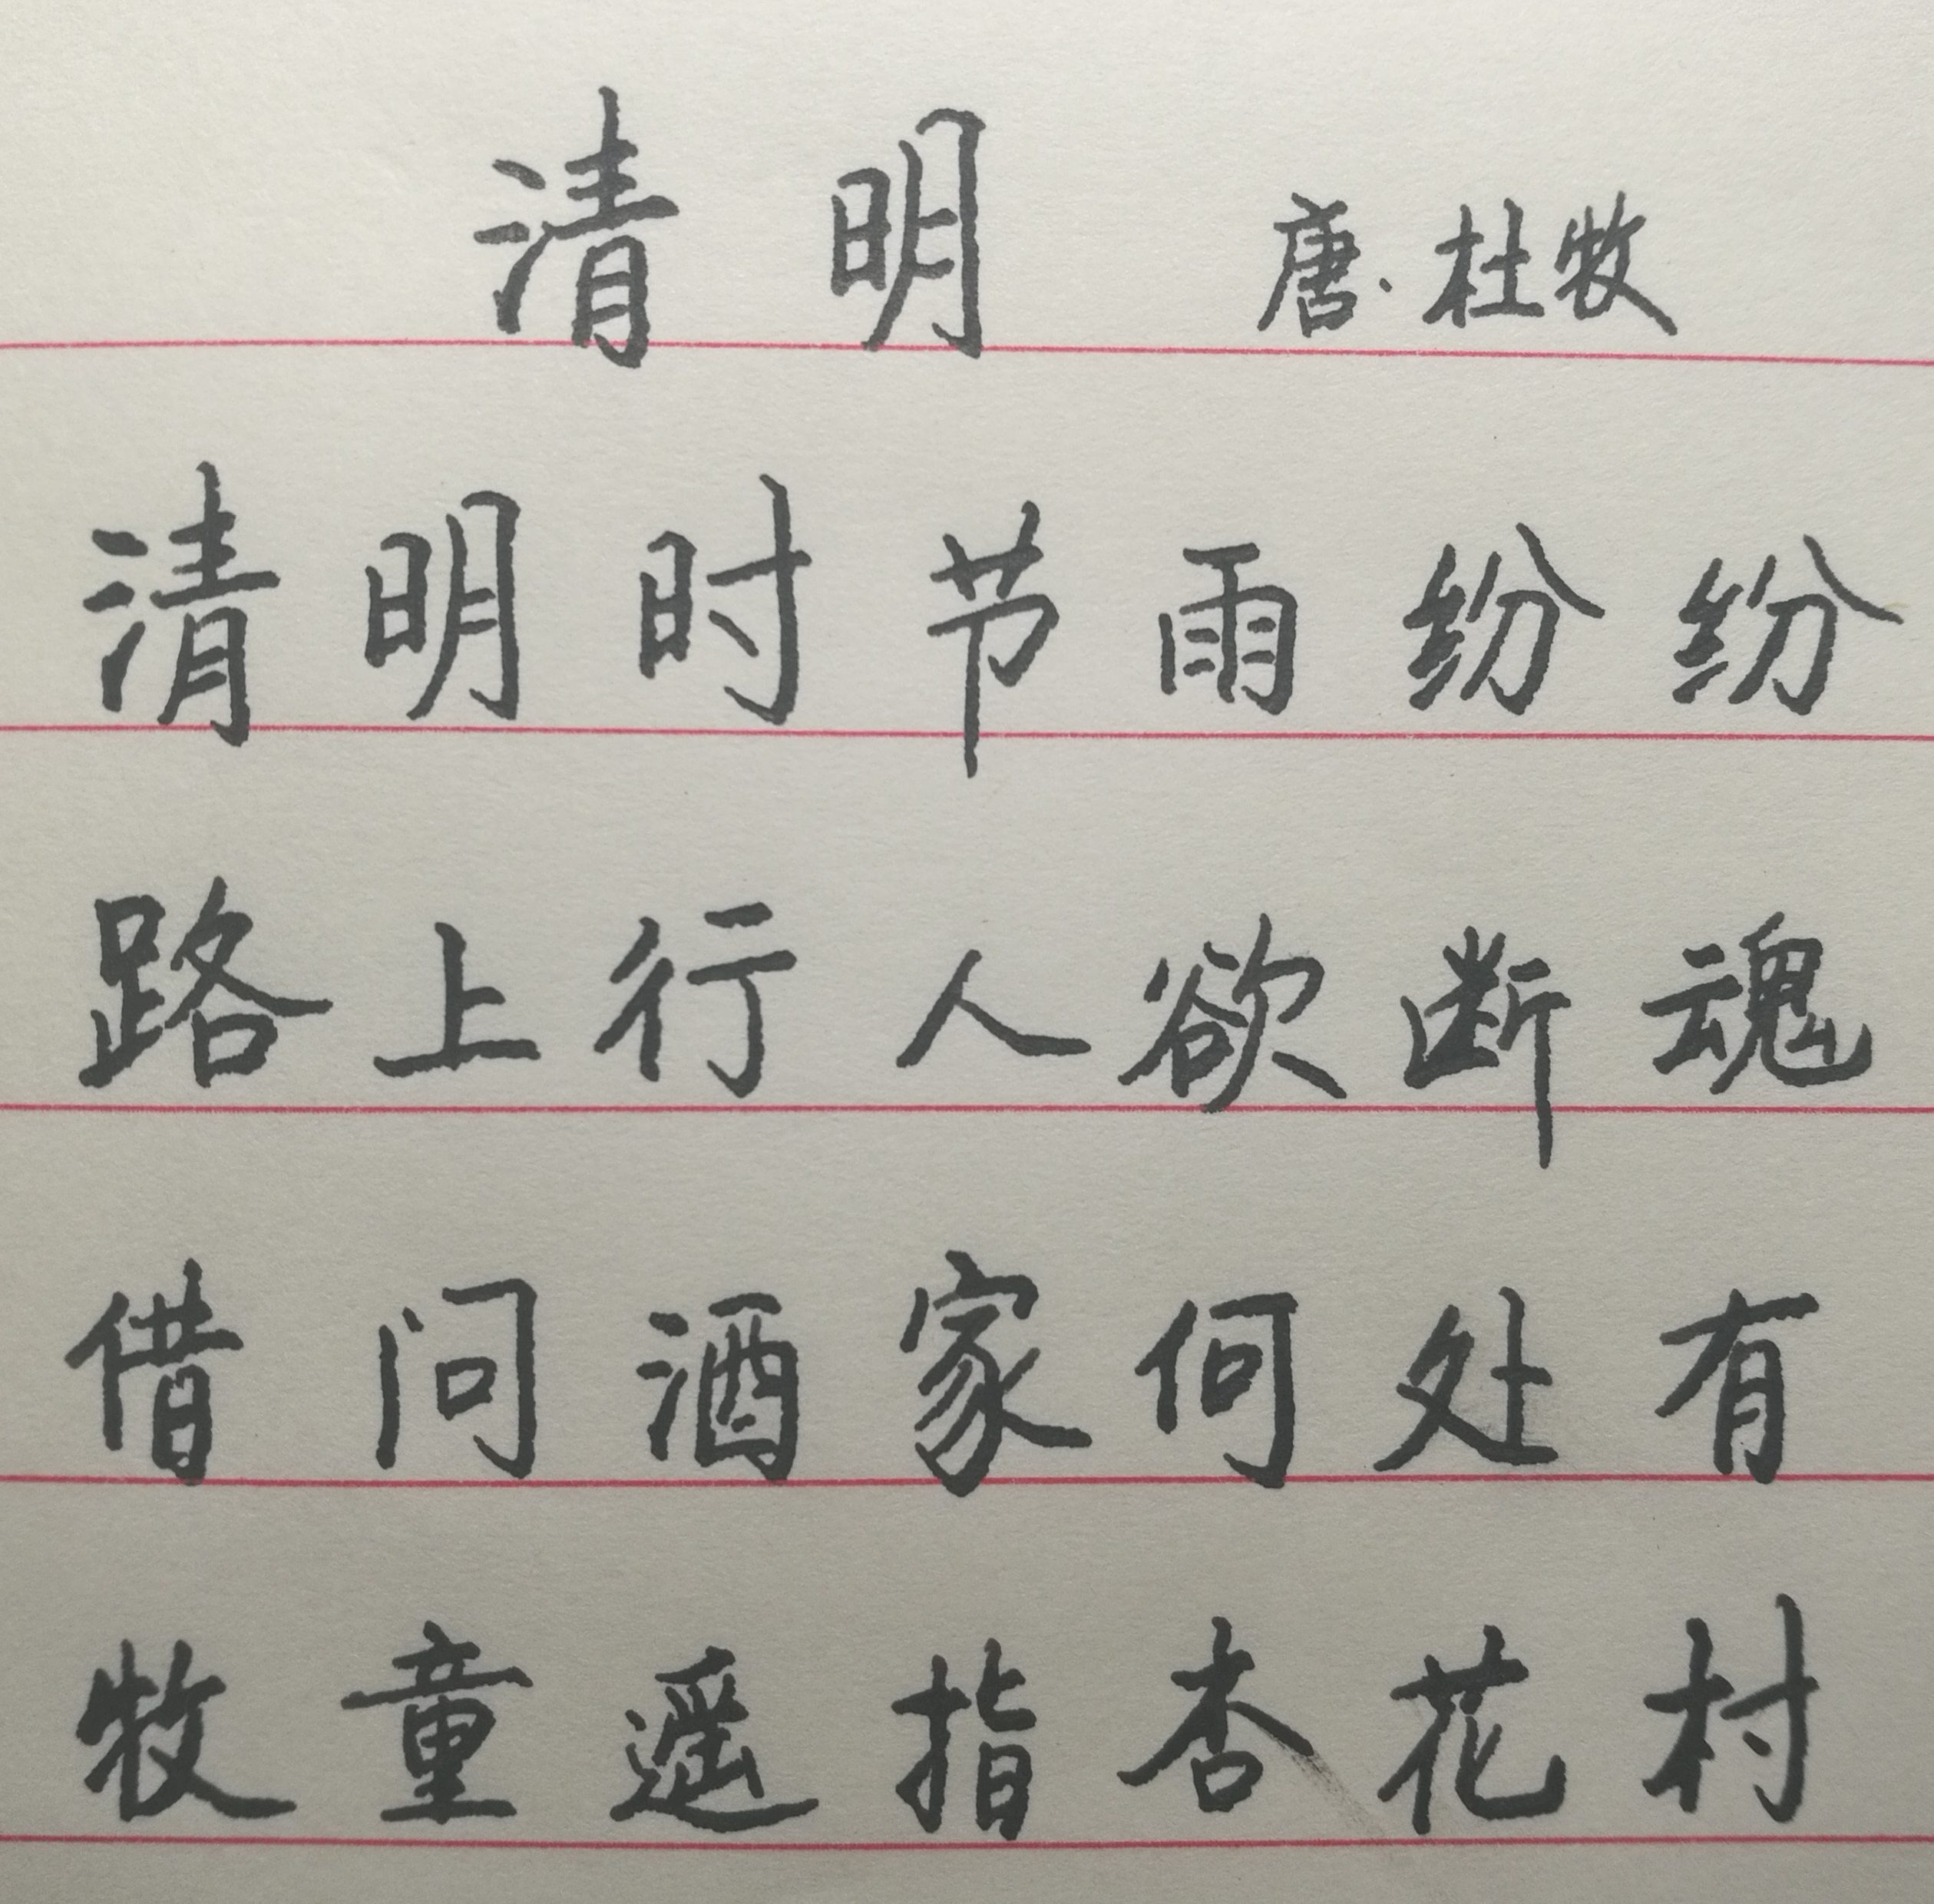 清明 唐·杜牧
清明时节雨纷纷
路上行人欲断魂
借问酒家何处有
牧童遥指杏花村